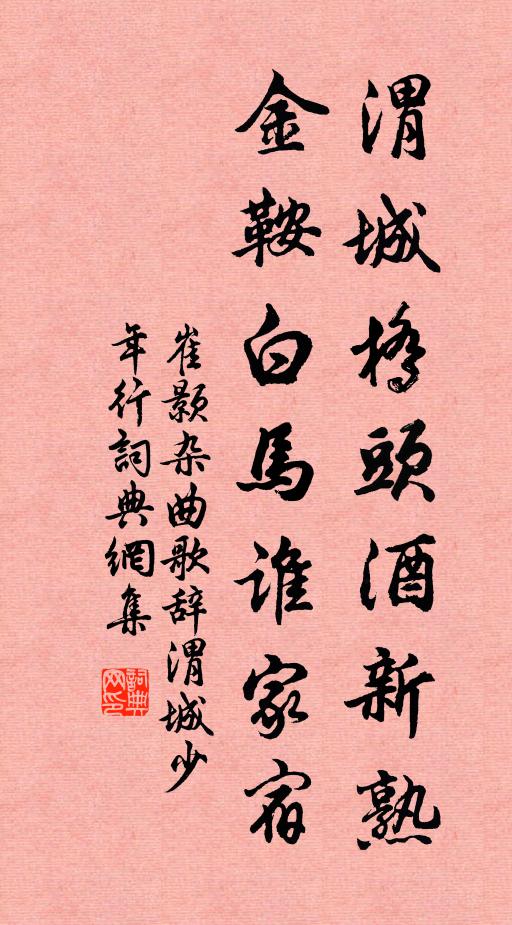 渭城橋頭酒新熟
金鞍白馬誰家宿
崔顥杂曲歌辞渭城少
年行詞典網集
詞典
网印